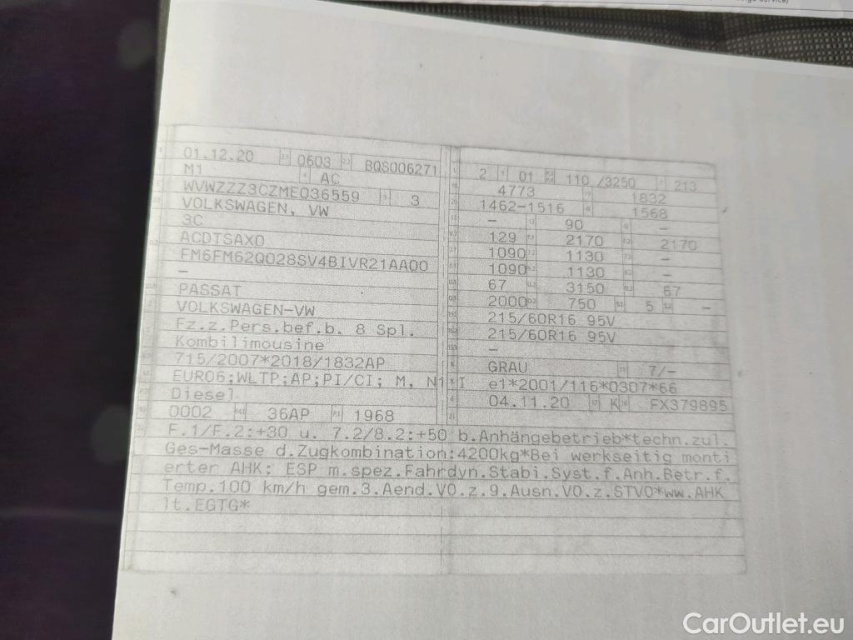 01.12.20 0603 BQS006271
M1 AC
WVWZZZ3CZME036559 3
VOLKSWAGEN, VW
3C
ACDTSAX0
FM6FM62Q028SV4BIVR21AA00
–
PASSAT
VOLKSWAGEN-VW
Fz.z.Pers.bef.b. 8 Spl.
Kombilimousine
715/2007*2018/1832AP
EURO6;WLTP;AP;PI/CI; M, N1 I
Diesel
0002 36AP 1968
2 01 110 /3250 213
4773 1832
1462-1516 1568
– 90 –
129 2170 2170
1090 1130 –
1090 1130 –
67 3150 67
2000 750 5 –
215/60R16 95V
215/60R16 95V
–
GRAU 7/–
e1*2001/116*0307*66
04.11.20 K FX379895
F.1/F.2:+30 u. 7.2/8.2:+50 b.Anhängebetrieb*techn.zul.
Ges-Masse d.Zugkombination:4200kg*Bei werkseitig monti
erter AHK: ESP m.spez.Fahrdyn.Stabi.Syst.f.Anh.Betr.f.
Temp.100 km/h gem.3.Aend.VO.z.9.Ausn.VO.z.STVO*ww.AHK
lt.EGTG*
CarOutlet.eu